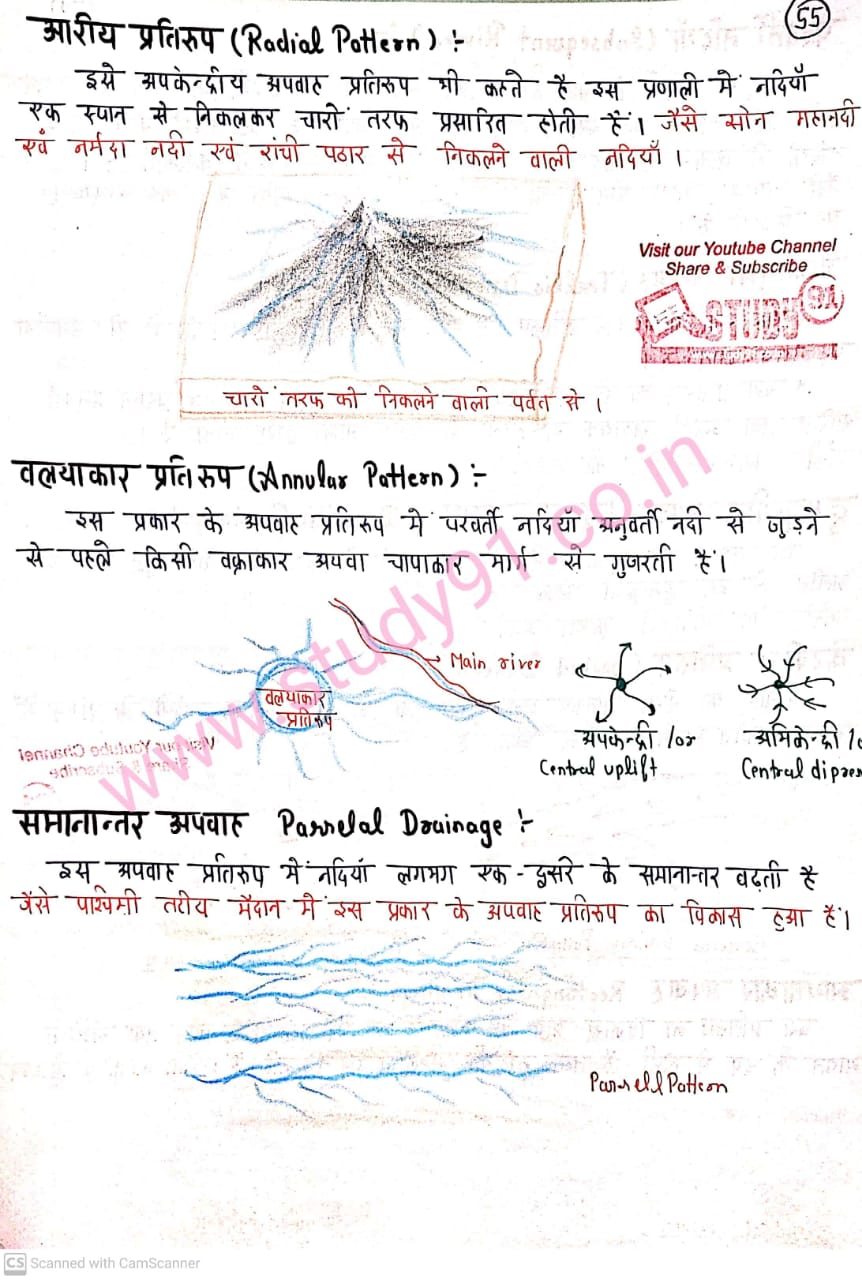 55
आरीय प्रतिरुप (Radial Pattern) :-
इसे अपकेन्द्रीय अपवाह प्रतिरुप भी कहते है इस प्रणाली में नदियाँ
एक स्थान से निकलकर चारों तरफ प्रसारित होती हैं। जैसे सोन महानदी
एवं नर्मदा नदी एवं रांची पठार से निकलने वाली नदियाँ।
Visit our Youtube Channel
Share & Subscribe
STUDY 91
चारों तरफ को निकलने वाली पर्वत से।
वलयाकार प्रतिरुप (Annular Pattern) :-
इस प्रकार के अपवाह प्रतिरुप में परवर्ती नदियाँ अनुवर्ती नदी से जुड़ने
से पहले किसी वक्राकार अथवा चापाकार मार्ग से गुजरती हैं।
Main river
वलयाकार
प्रतिरुप
अपकेन्द्री /or
Central uplift
अभिकेन्द्री /o
Central dipres
www.study91.co.in
समानान्तर अपवाह Parrelal Drainage :-
इस अपवाह प्रतिरुप में नदियाँ लगभग एक-दुसरे के समानान्तर बढ़ती है
जैसे पश्चिमी तटीय मैदान में इस प्रकार के अपवाह प्रतिरुप का विकास हुआ है।
Parrell Pattern
CS Scanned with CamScanner